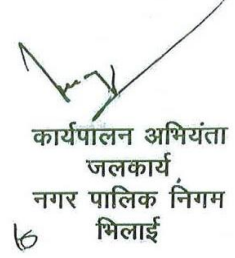 कार्यपालन अभियंता
जलकार्य
नगर पालिक निगम
भिलाई